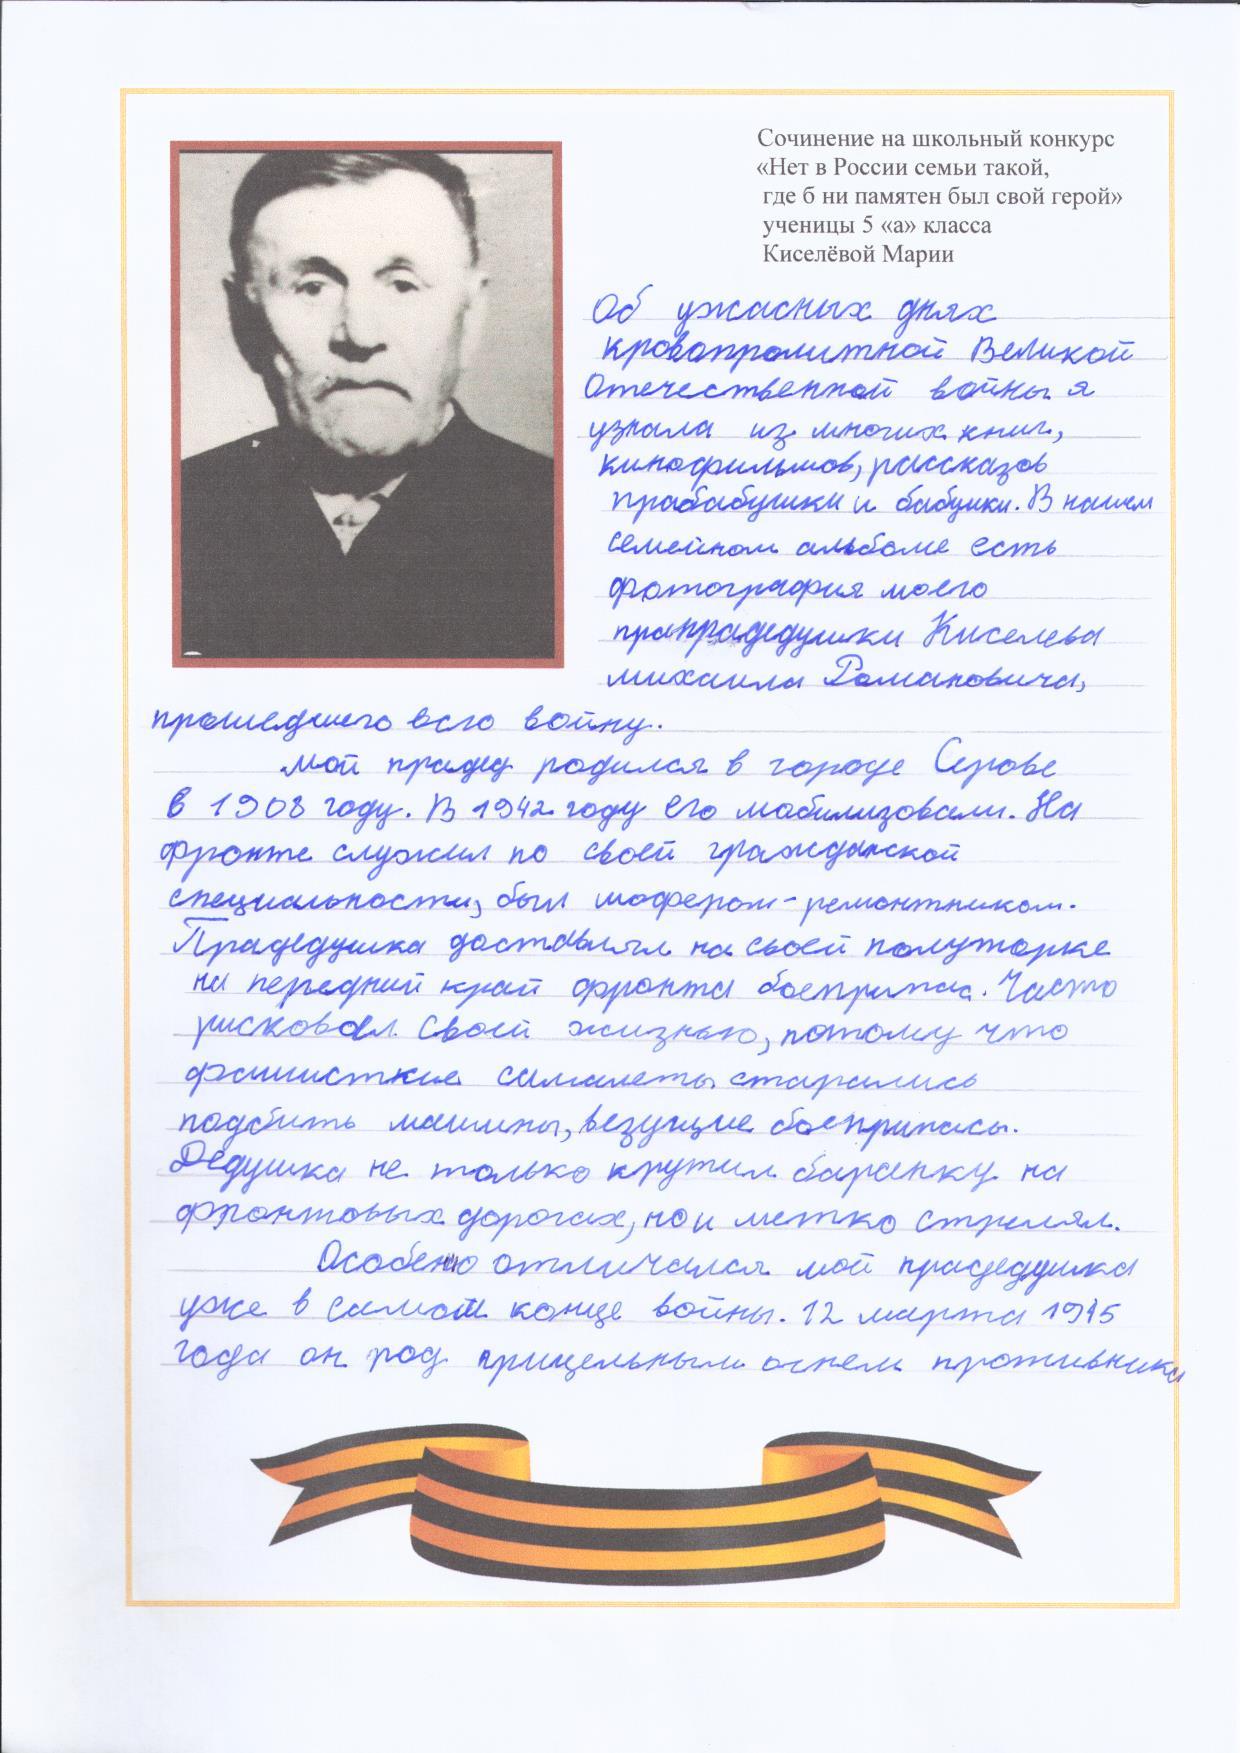 Сочинение на школьный конкурс
«Нет в России семьи такой,
где б ни памятен был свой герой»
ученицы 5 «а» класса
Киселёвой Марии
Об ужасных днях
кровопролитной Великой
Отечественной войны я
узнала из многих книг,
кинофильмов, рассказов
прабабушки и бабушки. В нашем
семейном альбоме есть
фотография моего
прапрадедушки Киселева
михаила Романовича,
прошедшего всю войну.
мой прадед родился в городе Серове
в 1908 году. В 1942 году его мобилизовали. На
фронте служил по своей гражданской
специальности, был шофером-ремонтником.
Прадедушка доставлял на своей полуторке
на передний край фронта боеприпас. Часто
рисковал своей жизнью, потому что
фашисткие самолеты старались
подбить машины, везущие боеприпасы.
Дедушка не только крутил баранку на
фронтовых дорогах, но и метко стрелял.
Особенно отличался мой прадедушка
уже в самом конце войны. 12 марта 1945
года он под прицельным огнем противника